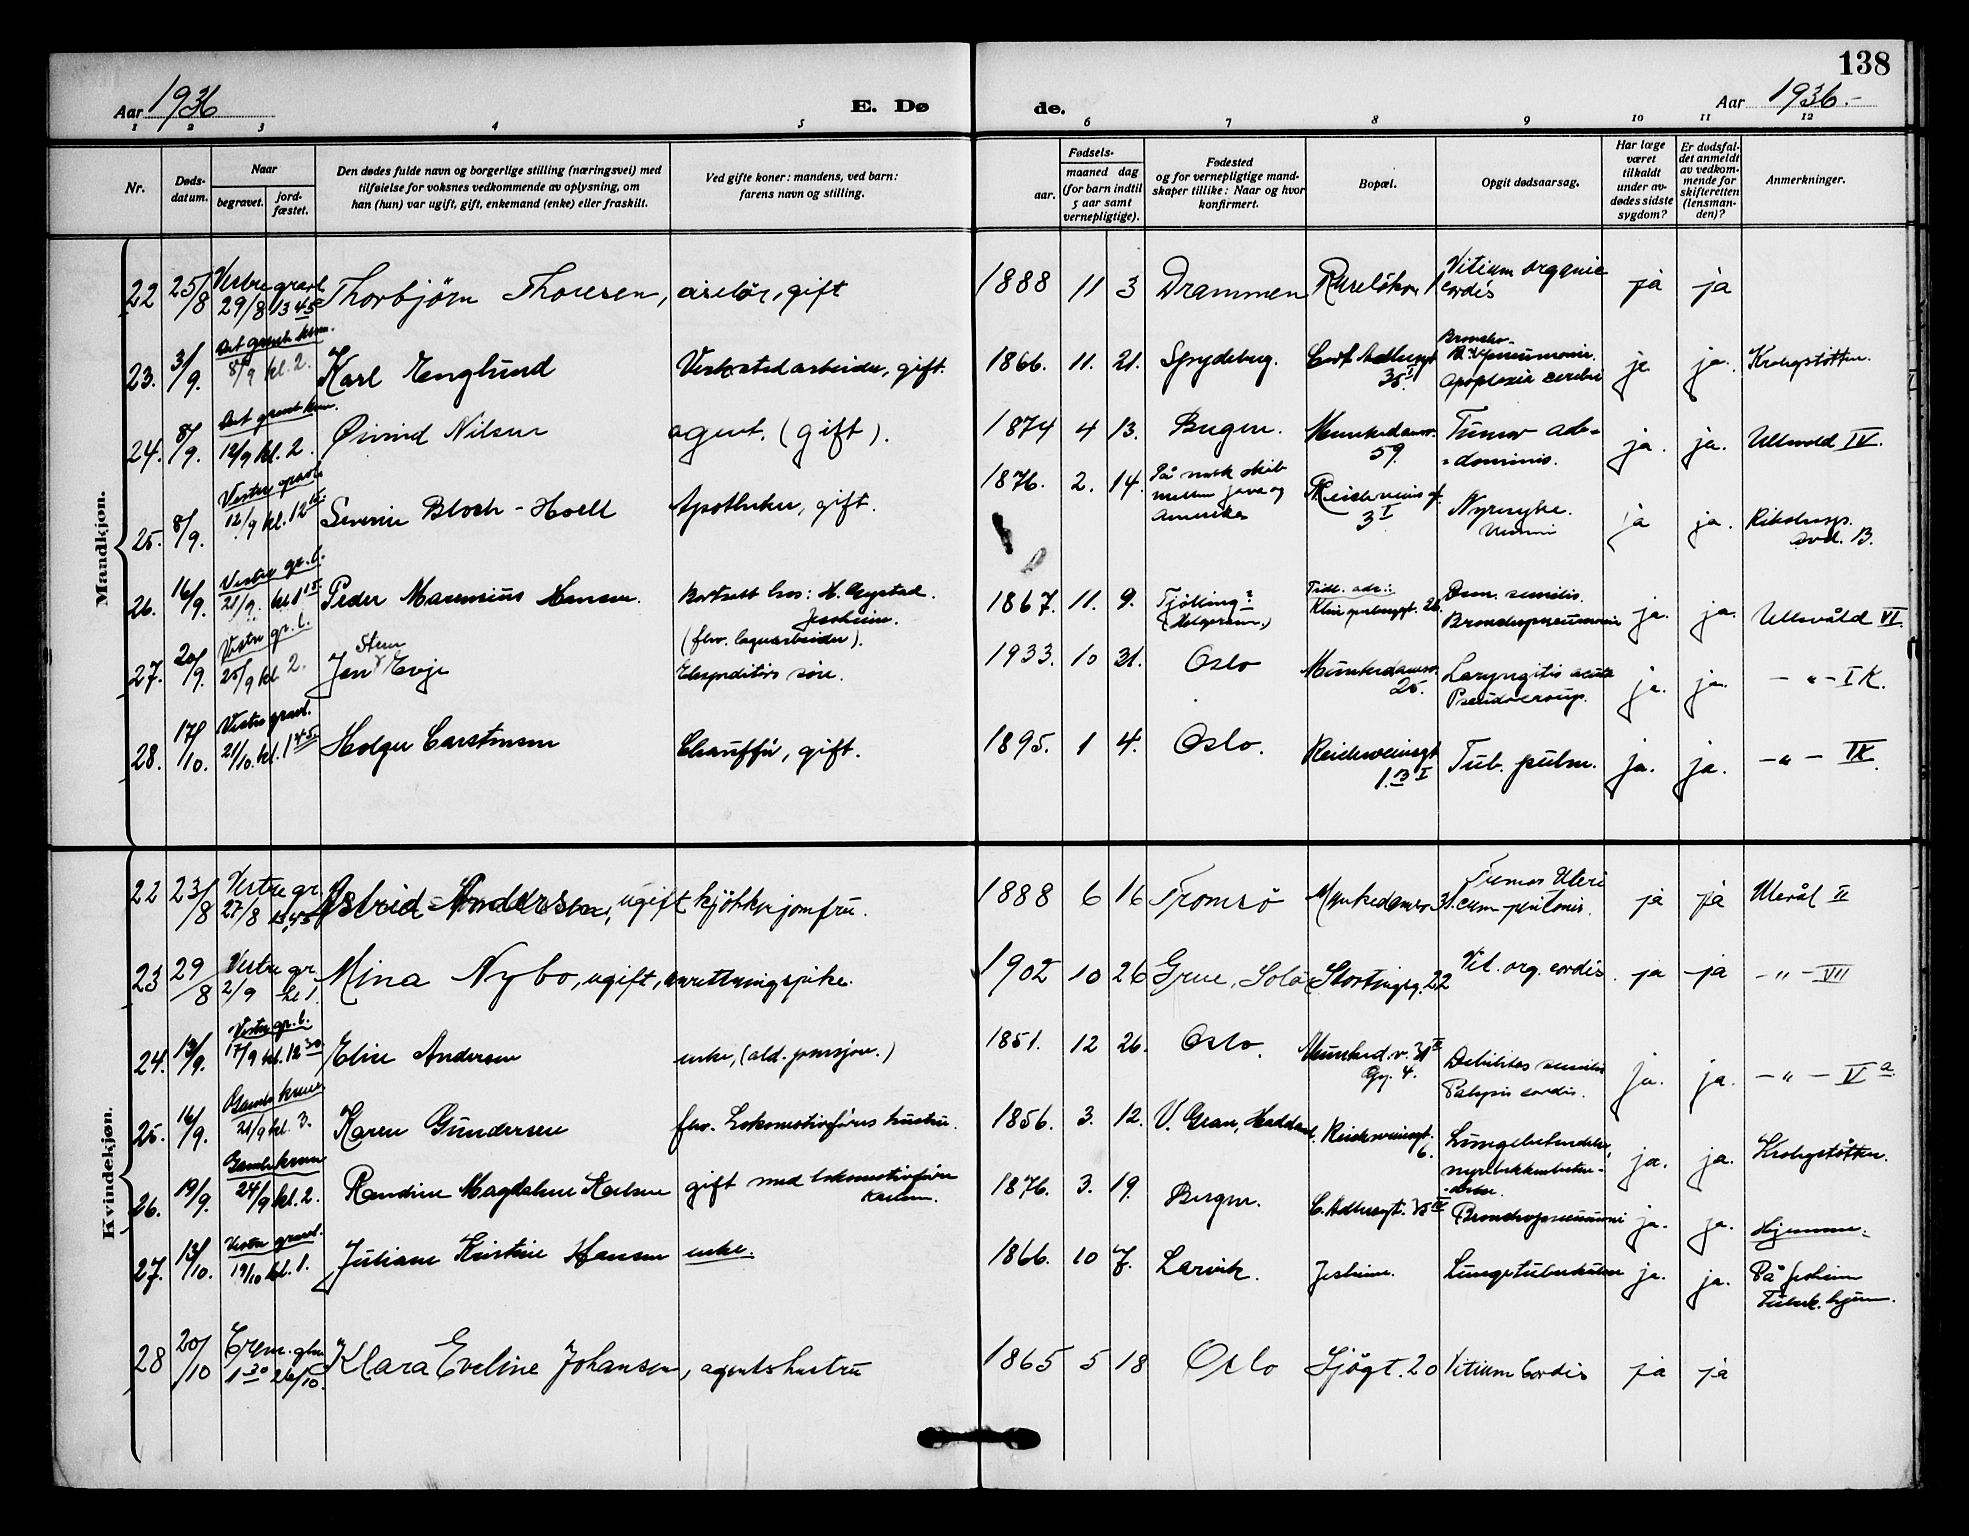 138
Aar 1936
E. Dø
de.
Aar 1936.-
1 2 3 4 5 6 7 8 9 10 11 12
Nr.
Døds-
datum.
Naar
begravet.
jord-
fæstet.
Den dødes fulde navn og borgerlige stilling (næringsvei) med
tilføielse for voksnes vedkommende av oplysning, om
han (hun) var ugift, gift, enkemand (enke) eller fraskilt.
Ved gifte koner: mandens, ved barn:
farens navn og stilling.
Fødsels-
aar.
maaned dag
(for barn indtil
5 aar samt
vernepligtige).
Fødested
og for vernepligtige mand-
skaper tillike: Naar og hvor
konfirmert.
Bopæl.
Opgit dødsaarsag.
Har læge
været
tilkaldt
under av-
dødes sidste
sygdom?
Er dødsfal-
det anmeldt
av vedkom-
mende for
skifteretten
(lensman-
den)?
Anmerkninger.
Mandkjøn.
22 25/8 Vestre gravl. 29/8 13 45 Thorbjørn Thoresen, ciselör, gift 1888 11 3 Drammen Vitium organic cordis ja ja
23. 3/9. 8/9 kl. 2. Karl Englund Verkstedarbeider, gift. 1866. 11. 21. Spydeberg. Bronchopneumonie. Apoplexia cerebri ja ja. Krohgstøtten.
24. 8/9. 12/9 kl. 2. Øivind Nilsen agent. (gift). 1874 4 13. Bergen. Munkedamsv. 59. Tumor ab-
-dominis. ja. ja. Ullevold IV.
25. 8/9. Vestre gravl. 12/9 kl. 12 Severin Bloch-Hoell Apotheker, gift. 1876. 2. 14. På norsk skib
mellem Java og
Amerika Reichweinsgt. 3 I Nyresyke. Uremi ja ja. Rikshosp.
avd. B.
26. 16/9. Vestre gr.l. 21/9. kl. 1 15 Peder Marenius Hansen. Bortsatt hos: H. Jessheim.
1867. 11. 9. Tjølling? Tidl. adr.: Dem. senilis.
Bronchopneumonie ja. ja. Ullevåld VI.
27. 20/9. Vestre gr.l. 25/9 kl 2. Jan Sten Evje Ekspeditørs søn. 1933. 10 31. Oslo Munkedamsv. 25. Laryngitis acuta
Pseudocroup. ja. ja. -"- IX.
28. 17/10. Vestre gravl. 21/10. kl. 1 45. Holger Carstensen Chauffør, gift. 1895. 1 4. Oslo. Reichweinsgt. Tub. pulm. ja. ja. -"- IX
Kvindekjøn.
22 23/8 Vestre gr. 27/8 13,45 Astrid Andersen, ugift kjökkenjomfru. 1888 6 16 Tromsö Munkedamsv. 31. Tumor Uteri
cum peritonis. ja ja Ulevål II
23 29/8 Vestre gr. 2/9 kl 1. Mina Nybo, ugift, anrettningspike. 1902 10 26 Grue, Solör Stortingsg. 22 Vit. org. cordis. ja ja -"- VII
24. 13/9. Vestre gr.l. 17/9 kl. 12 30 Elise Andersen enke, (ald. pensjon.) 1851. 12 26. Oslo. Munked.v. 31 Debilitas senilis ja. ja. -"- V a
25. 16/9. Gamle krem. 21/9 kl. 3. Karen Gundersen fhv. Lokomotivførers hustru. 1856. 3. 12. V. Gran, Hadeland. Reichweinsgt. 6. Lungebetendelse,
nyrebekkenbeten-
-delse. ja. ja. Krohgstøtten.
26. 19/9. Gamle krem 24/9 kl. 2. Randine Magdalene Karlsen gift med lokomotivfører
Karlsen. 1876. 3. 19. Bergen. C. Adlersgt. 35 IV Bronchopneumoni ja. ja. Hjemme.
27. 13/10. Vestre gravl. 19/10 kl. 1. Juliane Kristine Hansen enke. 1866. 10 7. Larvik. Jessheim. Lungetuberkulose ja. ja. På Jesheim
Tuberk. hjem.
28 20/10 Crem. 1 30 26/10. Klara Eveline Johansen, agents hustru 1865 5 18 Oslo Sjøgt. 20 Vitium Cordis ja ja